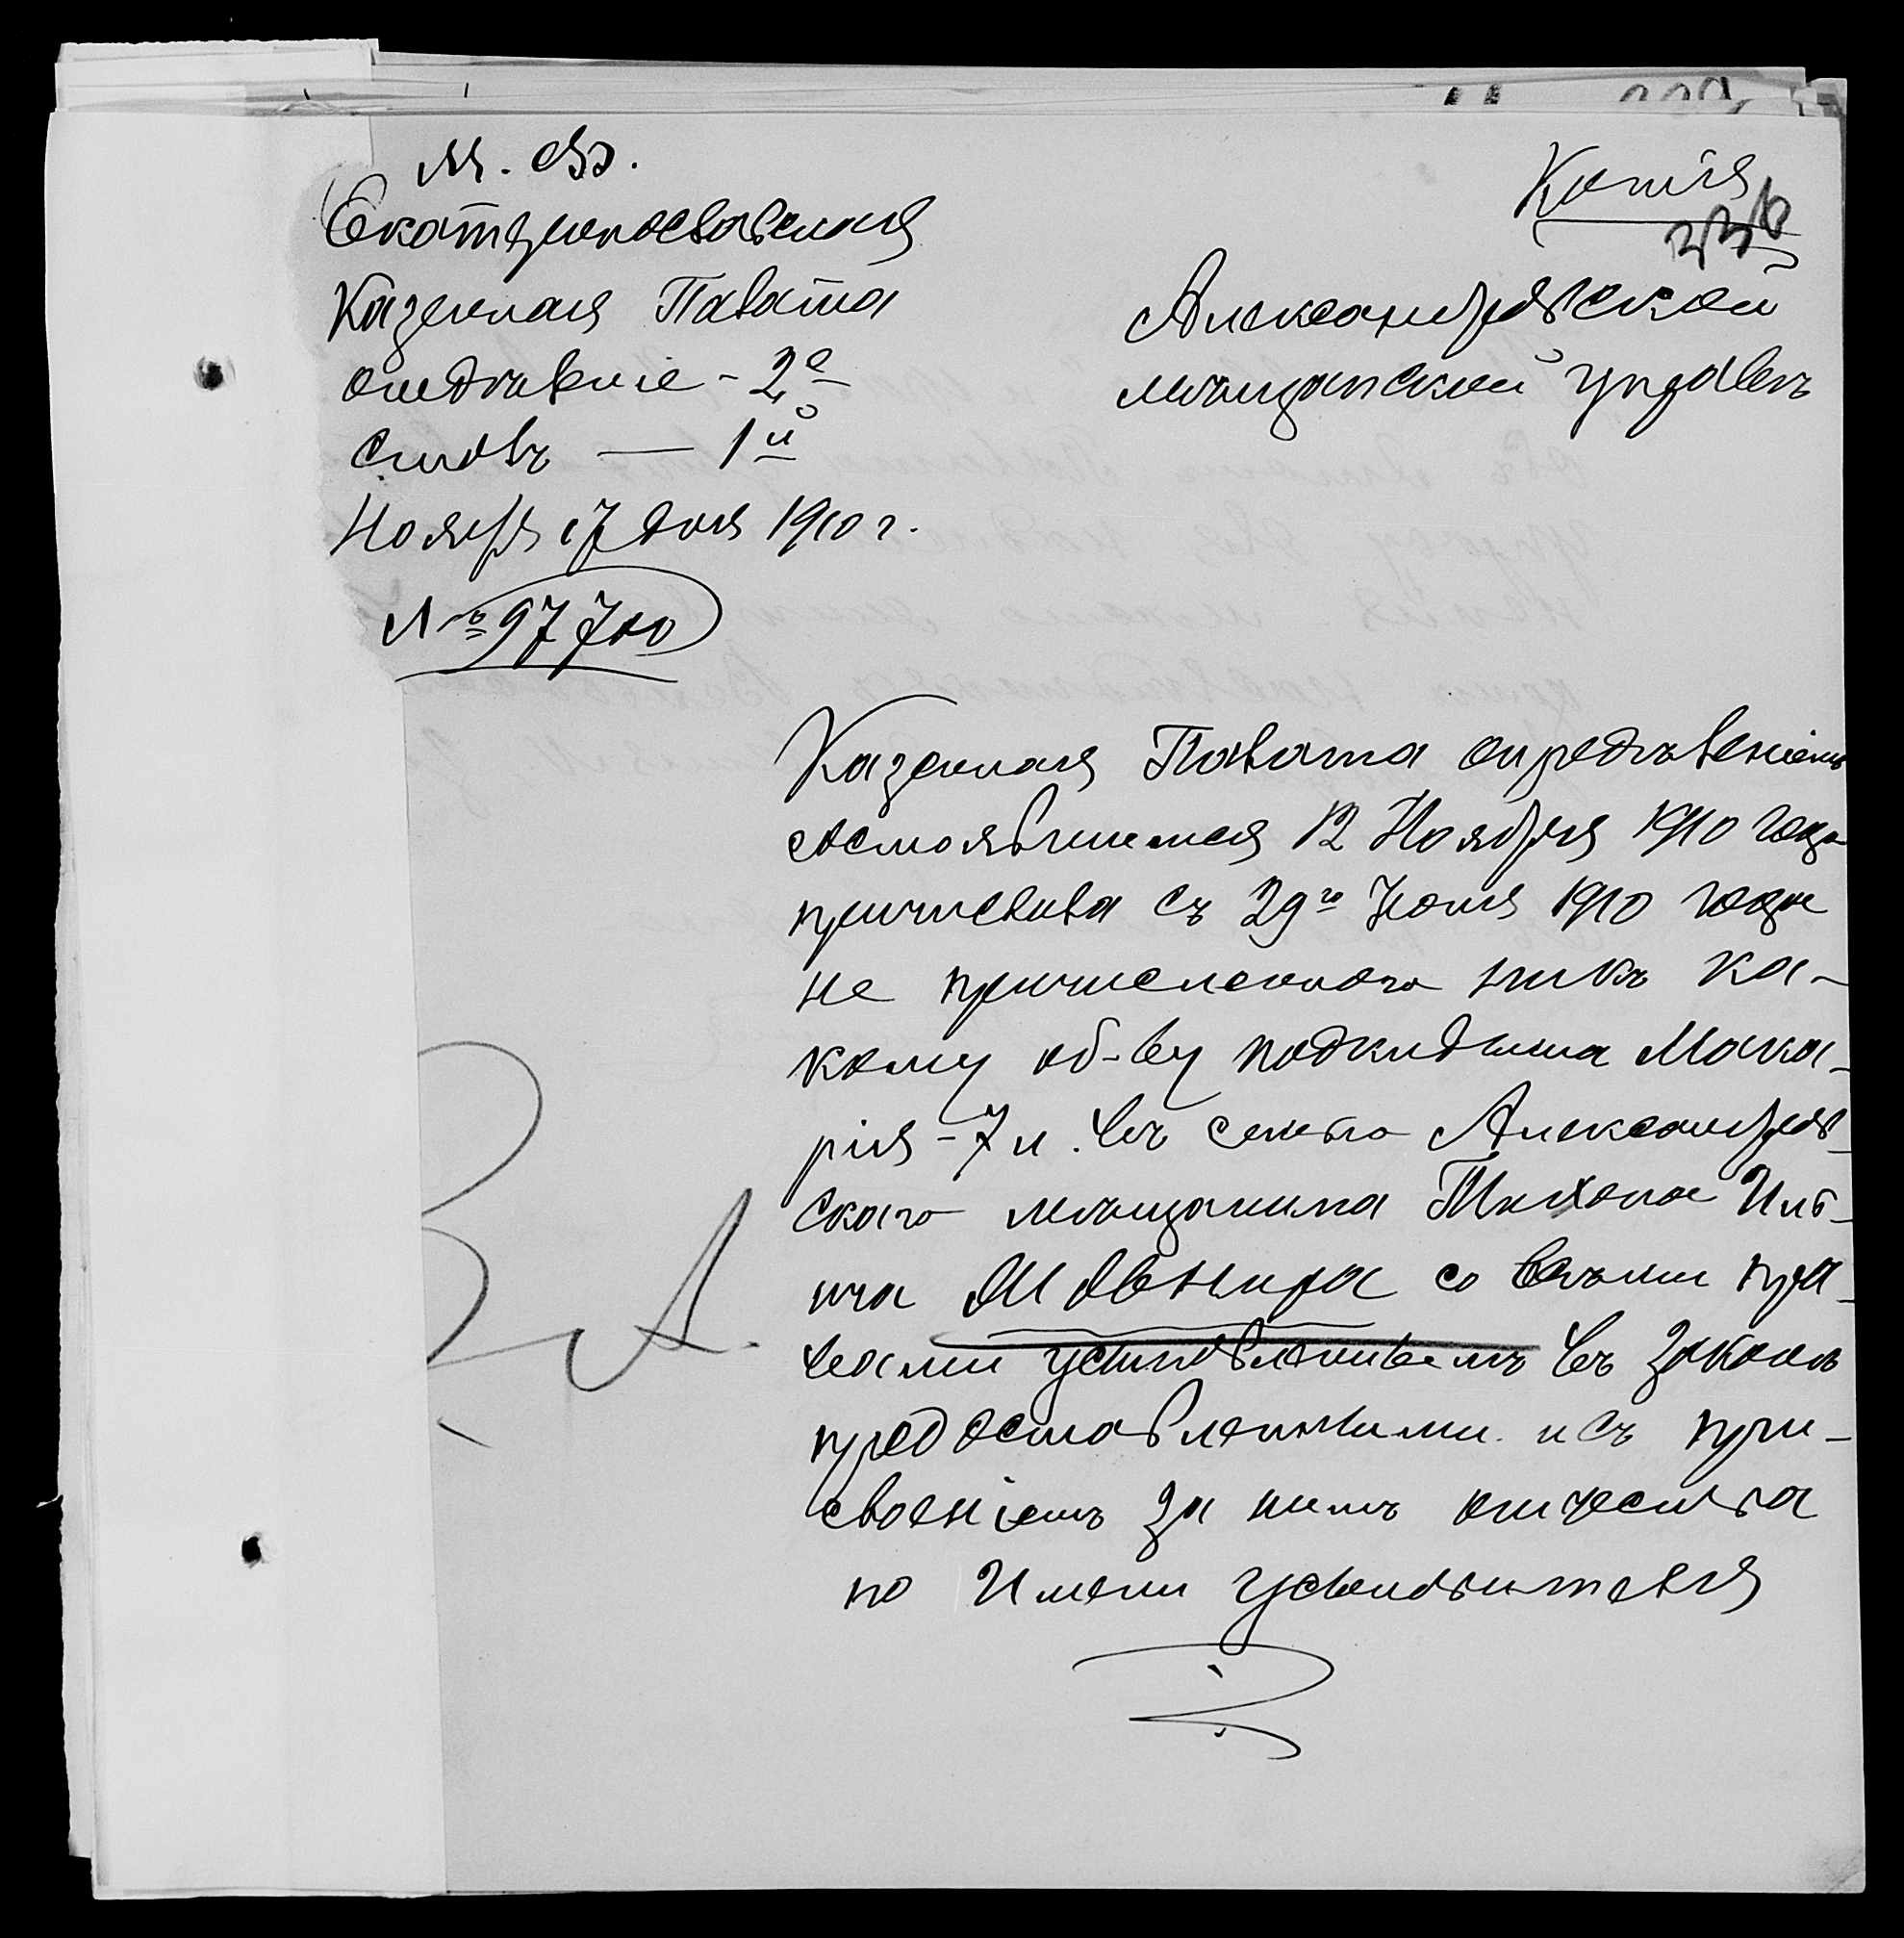 М. Ф.
Копія
236
Екатеринославская
Казенная Палата
отдѣленіе - 2е
Столъ — 1й
Ноября 17 дня 1910 г.
№ 97700
Александровской
мѣщанской управѣ
Казенная Палата опредѣленіемъ
состоявшимся 12 Ноября 1910 года
причислила съ 29го Іюля 1910 года
не причисленного никъ ка-
кому об-ву подкидыша Мака-
рія - 7 л. въ семью Александров-
скаго мѣщанина Тихона Иль-
ича Шовкира со всѣми пра-
вами усыновленнымъ въ законѣ
предоставленными и съ при-
своеніемъ за нимъ отчества
по Имени усыновителя